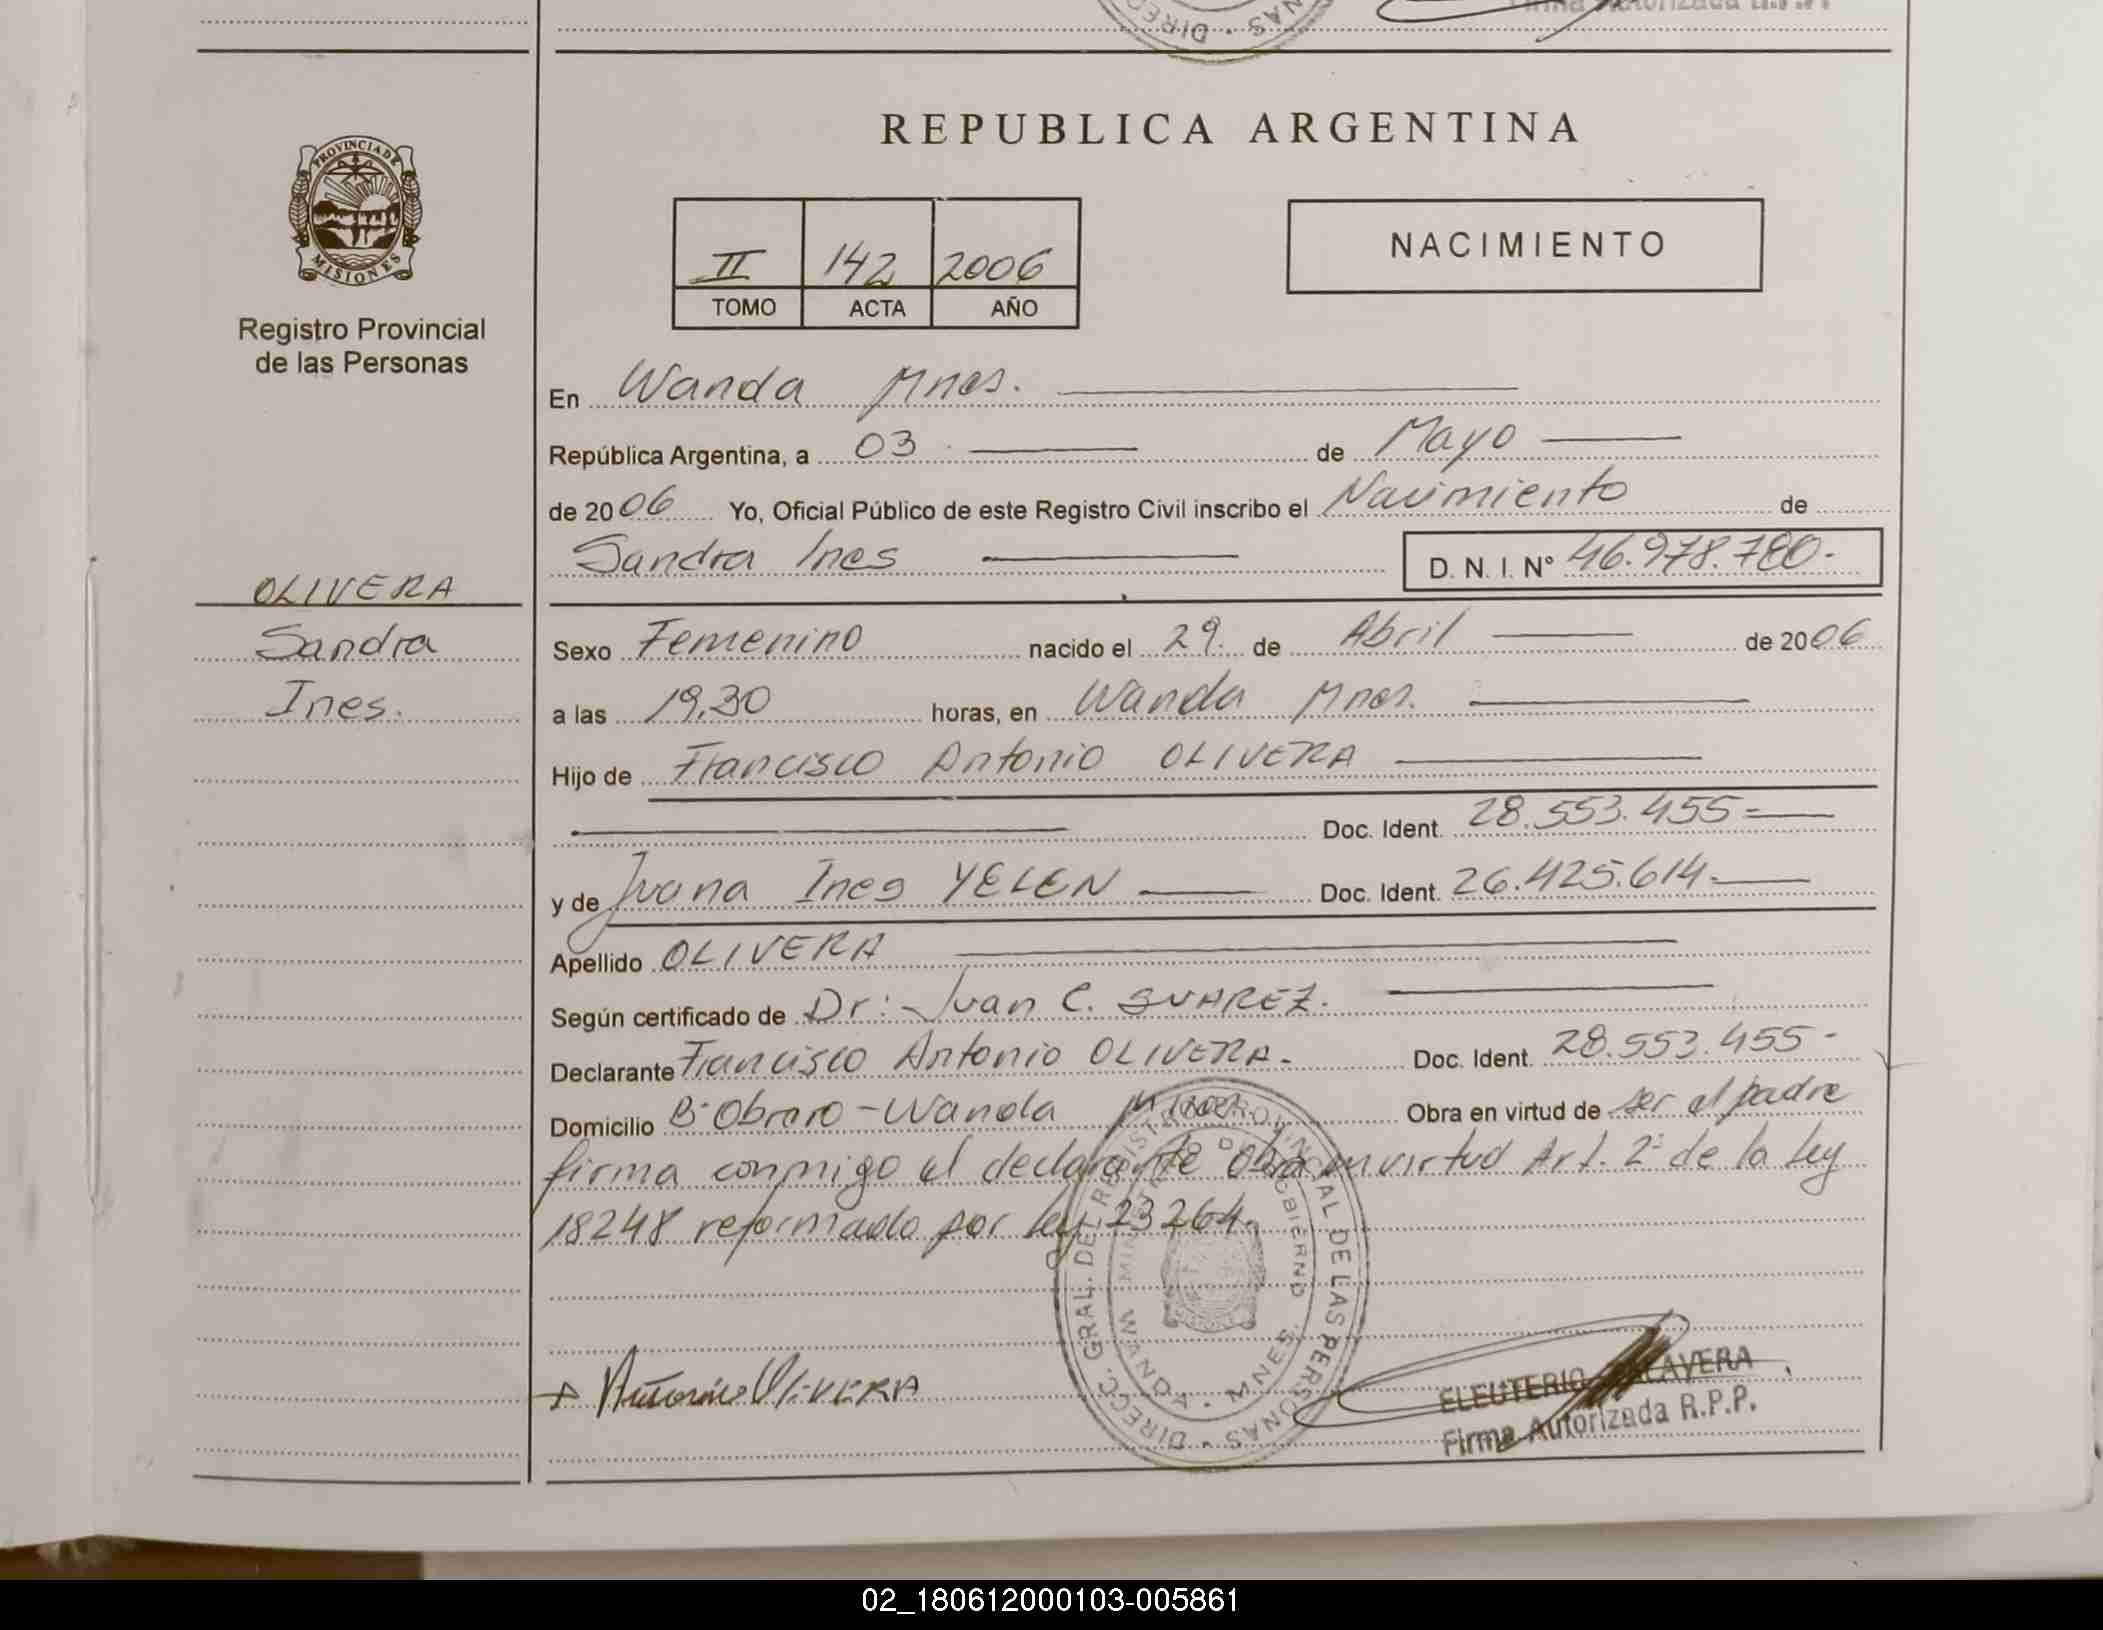 Firma Autorizada R.P.P.
DIRECC. PERSONAS
REPUBLICA ARGENTINA
PROVINCIA DE
MISIONES
Registro Provincial
de las Personas
II 142 2006
TOMO ACTA AÑO
NACIMIENTO
En Wanda Mnes.
República Argentina, a 03 de Mayo
de 2006 Yo, Oficial Público de este Registro Civil inscribo el Nacimiento de
Sandra Ines D. N. I. N° 46.978.780.-
OLIVERA
Sandra
Ines.
Sexo Femenino nacido el 29. de Abril de 2006
a las 19,30 horas, en Wanda Mnes.
Hijo de Francisco Antonio OLIVERA
Doc. Ident. 28.553.455=
y de Juana Ines YELEN Doc. Ident. 26.425.614.
Apellido OLIVERA
Según certificado de Dr: Juan C. SUAREZ.
Declarante Francisco Antonio OLIVERA.- Doc. Ident. 28.553.455-
Domicilio B° Obrero - Wanda Mnes. Obra en virtud de ser el padre
firma conmigo el declarante obra en virtud Art. 2° de la Ley
18248 reformado por ley 23264.
DIRECC. GRAL. DEL REGISTRO PROVINCIAL DE LAS PERSONAS
MINISTERIO DE GOBIERNO
WANDA - MNES.
Antonio OLIVERA
ELEUTERIO TALAVERA
Firma Autorizada R.P.P.
02_180612000103-005861